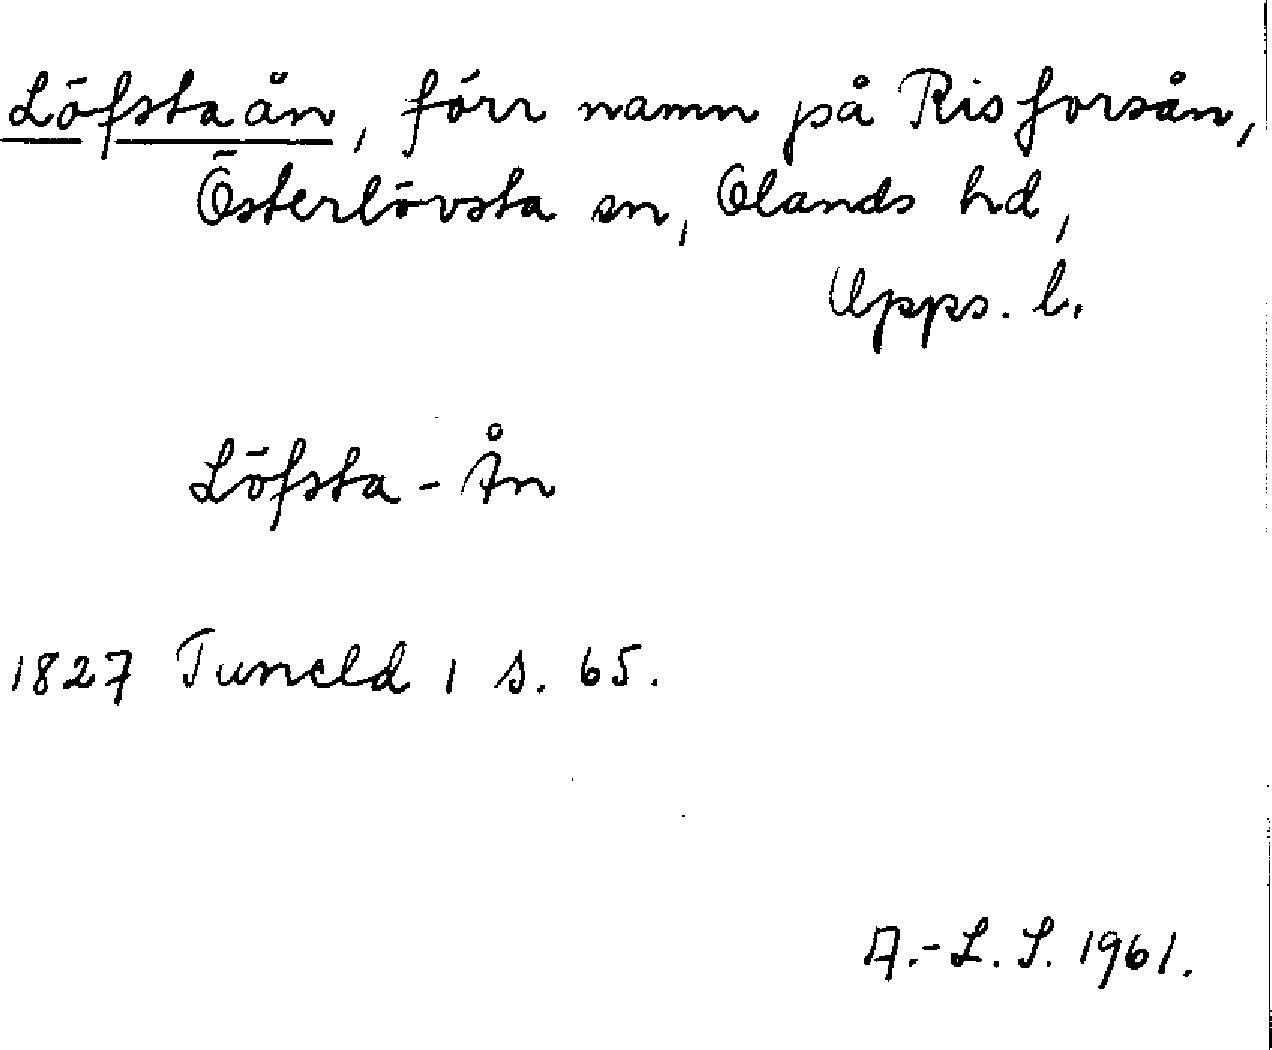 Löfstaån, förr namn på Risforsån,
Österlövsta sn, Olands hd,
Upps. l.
Löfsta-Ån
1827 Tuneld 1 s. 65.
A.-L. S. 1961.